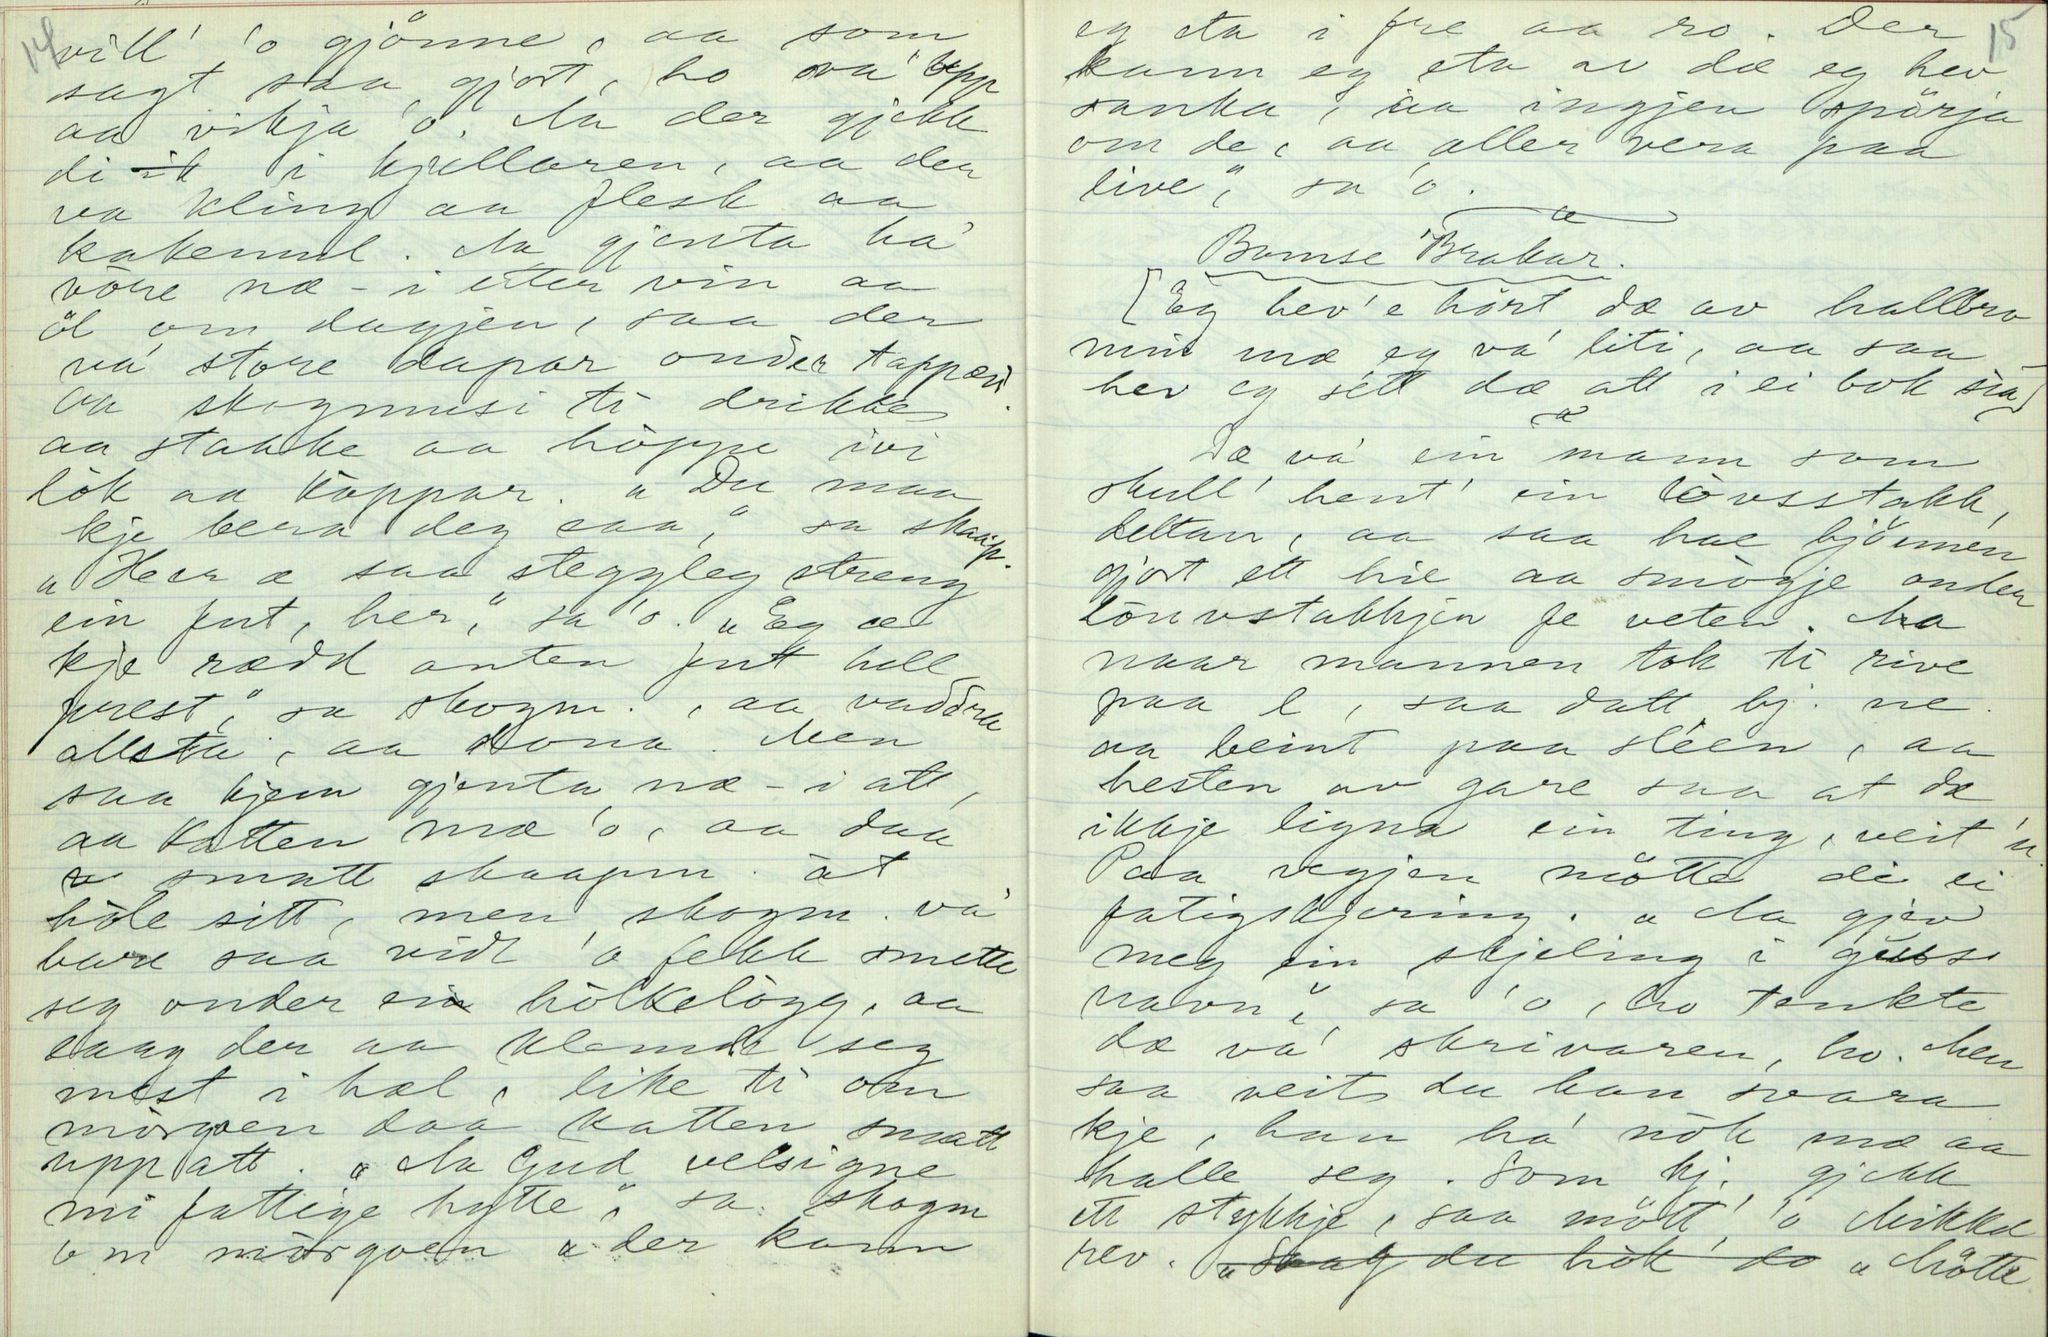 14
vill' 'o gjönne, aa som
sagt saa gjort, ho va' upp
aa vikja 'o. Aa der gjekk
di i kjellaren, aa der
va kling aa flesk aa
kakemul. Aa gjenta ha'
vöre næ-i etter vin aa
öl om dagjen, saa der
va' store dapar onder tappen.
Aa skogmusi ti drikke
aa stakke aa höppe ivi
lök aa koppar. "Du maa
kje bera deg saa," sa skaap.
"Her æ saa steggjleg streng
ein fut, her," sa 'o. "Eg æ
kje rædd anten fut hell
prest," sa skogm., aa vaddra
allsta', aa dona. Men
saa kjem gjenta næ-i att,
aa katten mæ 'o, aa daa
smatt skaapm. åt
höle sitt, men skogm. va'
bare saa vidt 'o fekk smette
seg onder ein hölkelögg, aa
laag der aa klemde seg
mest i hæl, like ti om
mörgoen daa katten smatt
upp att. "Aa Gud velsigne
mi fattige hytte," sa skogm
om mörgoen "der kann
15
eg eta i fre aa ro. Der
kann eg eta av dæ eg hev
sanka, aa ingjen spörja
om de, aa aller vera paa
live," sa 'o.
Bamse Brakar.
[Eg hev 'e hört dæ av hallbro
min mæ eg va' liti, aa saa
hev eg sett dæ att i ei bok sia]
Dæ va' ein mann som
skull' hent' ein lövsstakk,
deltan, aa saa hae bjönnen
gjort ett hie aa smögje onder
lönvstakkjen fe veten. Aa
naar mannen tok ti rive
paa l, saa datt bj. ne
aa beint paa sléen, aa
hesten av gare saa at dæ
ikkje ligna ein ting, veit 'u.
Paa vegjen mötte di ei
fatigskjæring. "Aa gjev
meg ein skjeling i guss
navn," sa 'o, ho tenkte
dæ va' skrivaren, ho. Men
saa veit du han svara
kje, han ha' nök mæ aa
halle seg. Som bj. gjekk
ett stykkje, saa mött' 'o Mikkel
rev. "Mötte